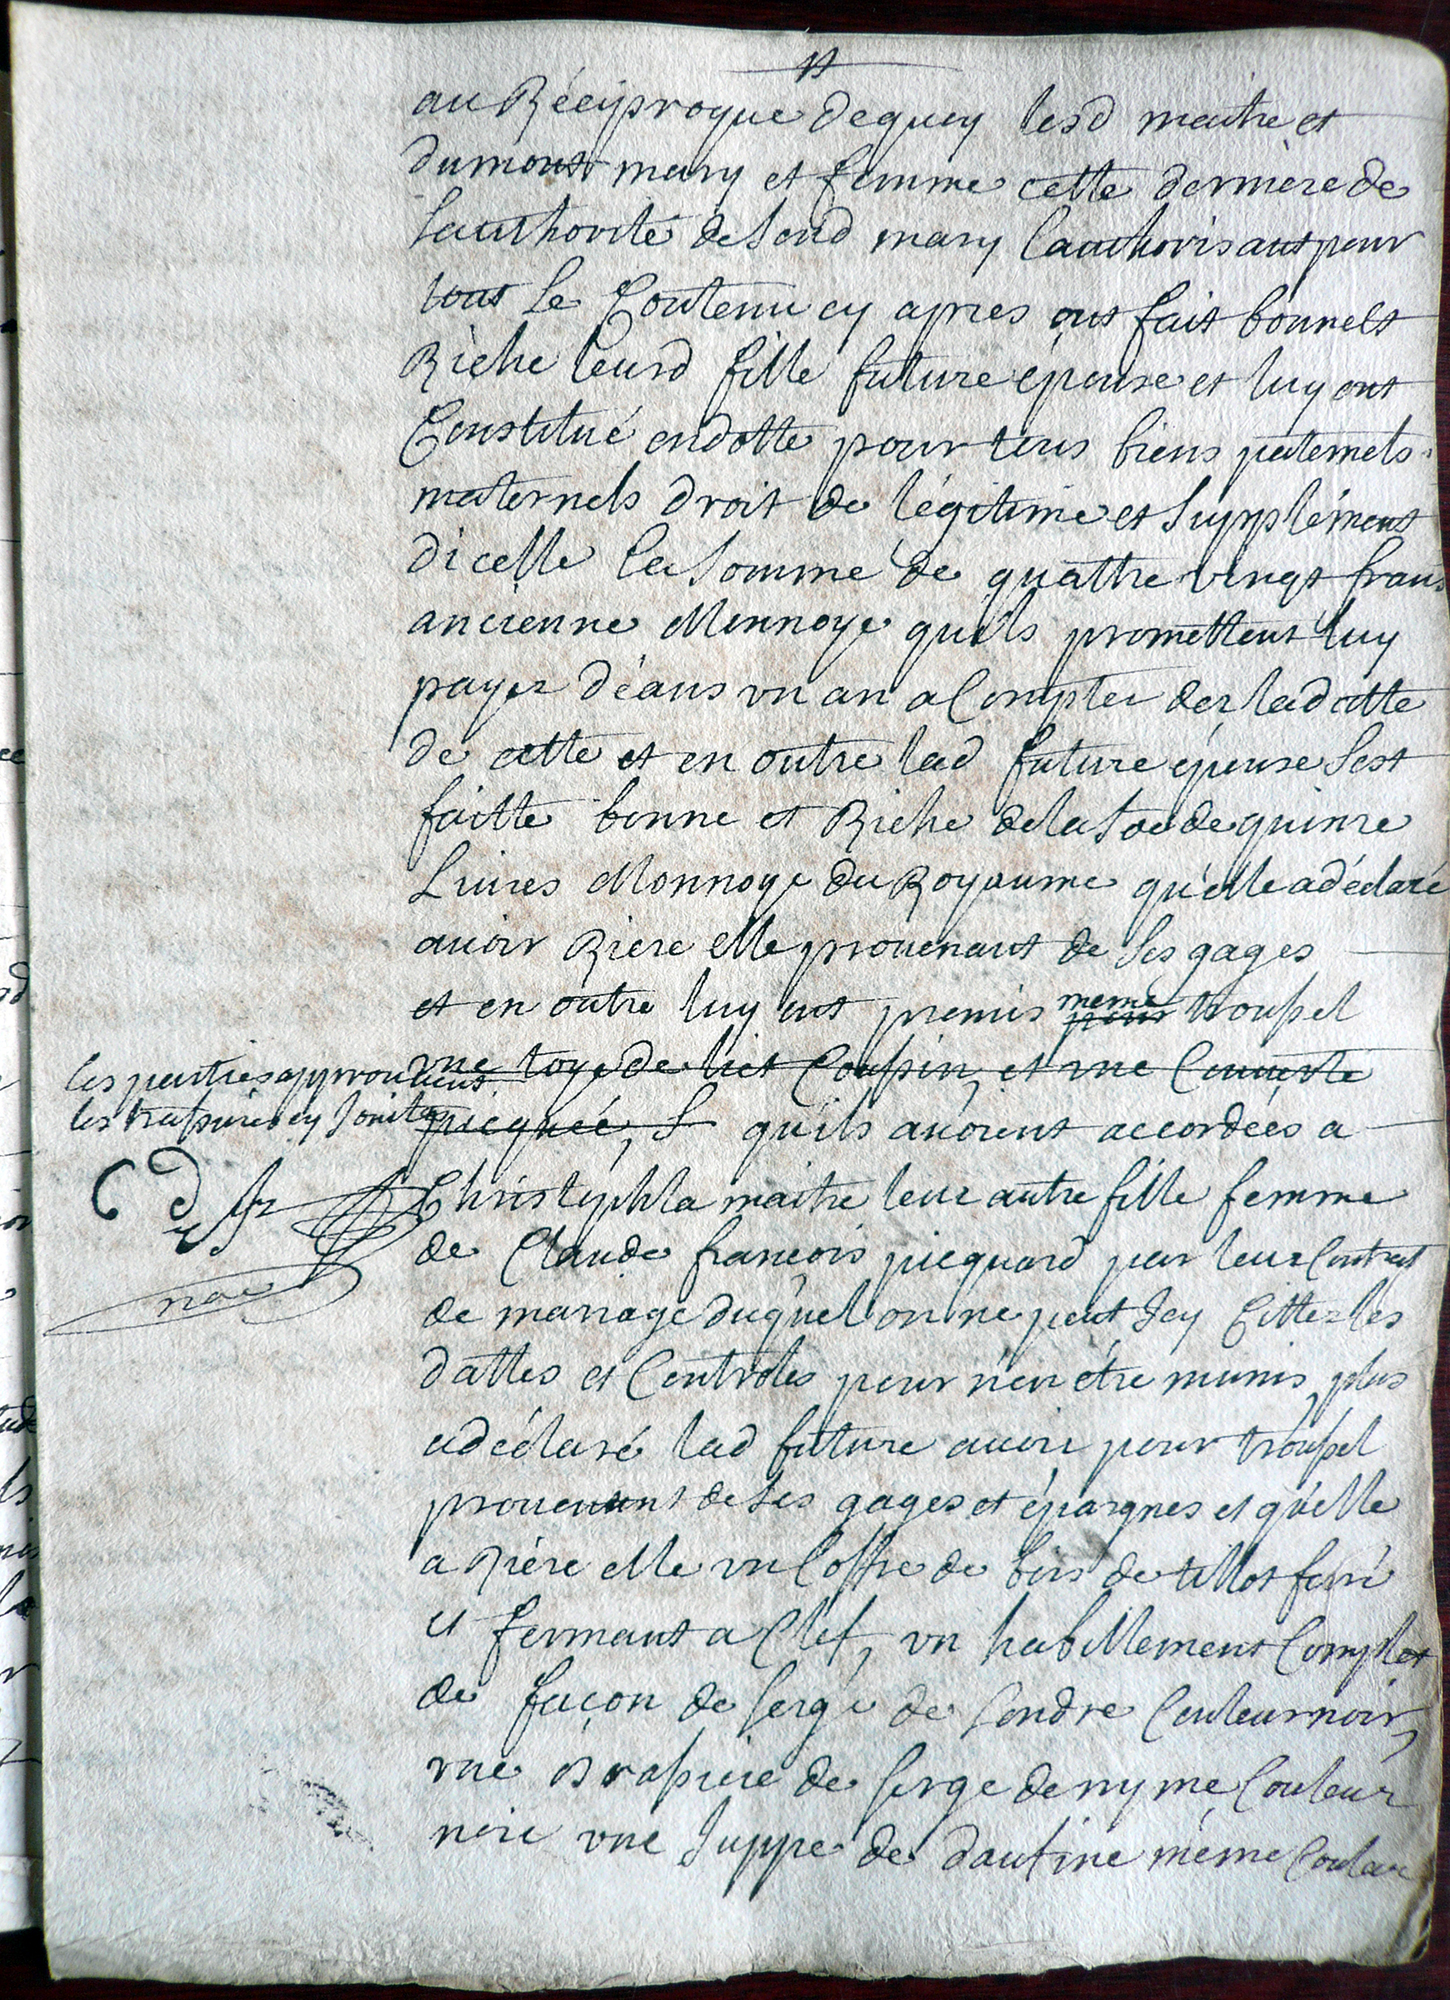 au Réciproque dequoy lesd maitre et
dumont mary et femme cette derniere de
Lauthorité de Sond mary lauthorisant pour
tout Le Contenu cy apres ont fait bonne et
Riche leurd fille future épouse et luy ont
Constitué en dotte pour tous biens paternels
maternels droit de légitime et Supplément
dicelle la Somme de quattre vingt frans
ancienne Monnoye quils promettent luy
payer déans un an a Compter dez la datte
de cette et en outre lad future épouse Sest
faitte bonne et Riche de la Soe de quinze
Livres Monnoye du Royaume qu'elle a déclaré
avoir Riere elle provenant de Ses gages
et en outre luy ont promis meme pour troussel
une toye de lict Coussin, et une Couverte
picquée, S qu'ils avoient accordées a
les parties approuvent
les trassures cy Jointes
Christophla maitre leur autre fille femme
de Claude francois picquard par leur Contract
de mariage duquel on ne peut Jcy Citter les
dattes et Controles pour n'en etre munis, plus
a déclaré lad future avoir pour troussel
provenant de Ses gages et épargnes et qu'elle
a Riere elle un Coffre de bois de tillot ferré
et fermant a Clef, un habillement Complet
de façon de Serge de Londre Couleur noir,
une Brassiere de Serge de nyme Couleur
noire une Juppe de daufine méme Couleur